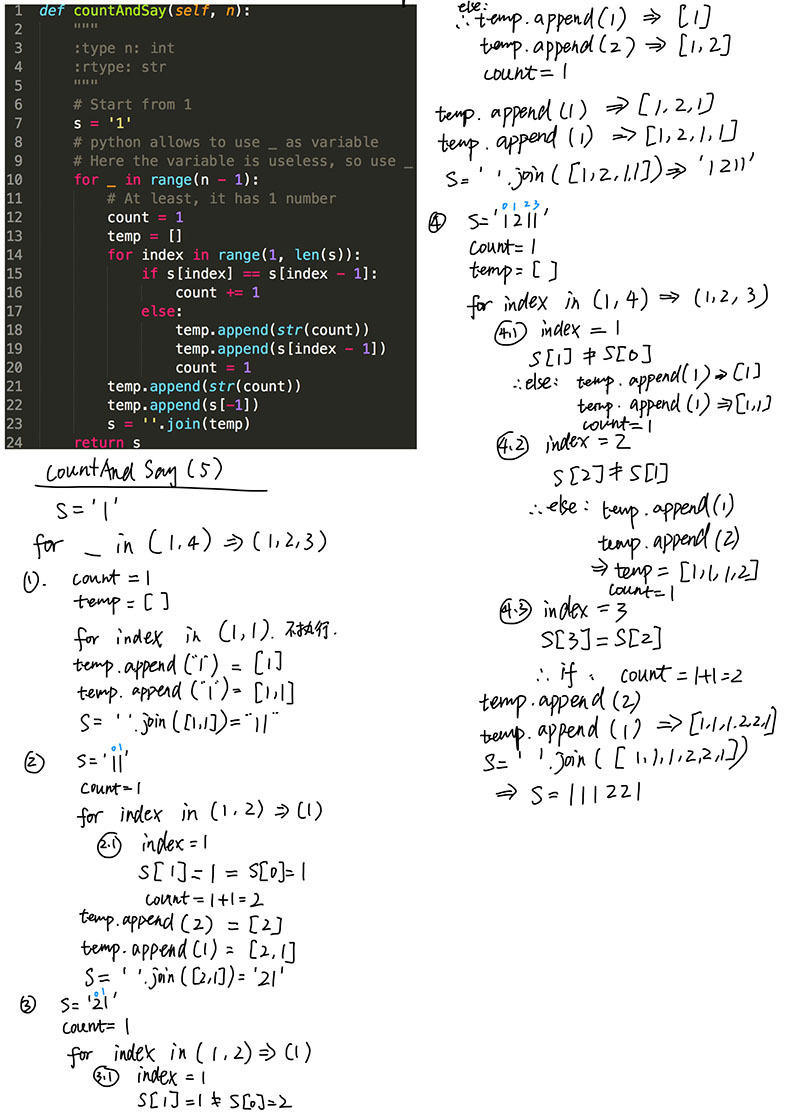 1 def countAndSay(self, n):
2 """
3 :type n: int
4 :rtype: str
5 """
6 # Start from 1
7 s = '1'
8 # python allows to use _ as variable
9 # Here the variable is useless, so use _
10 for _ in range(n - 1):
11 # At least, it has 1 number
12 count = 1
13 temp = []
14 for index in range(1, len(s)):
15 if s[index] == s[index - 1]:
16 count += 1
17 else:
18 temp.append(str(count))
19 temp.append(s[index - 1])
20 count = 1
21 temp.append(str(count))
22 temp.append(s[-1])
23 s = ''.join(temp)
24 return s
countAnd Say (5)
s = '1'
for _ in (1,4) ⇒ (1,2,3)
①. count = 1
temp = [ ]
for index in (1,1). 不执行.
temp.append("1") = [1]
temp.append("1") = [1,1]
S = ' '.join([1,1]) = "11"
0 1
② s = '11'
count=1
for index in (1,2) ⇒ (1)
2.1 index = 1
S[1] = 1 = S[0] = 1
count = 1+1 = 2
temp.append(2) = [2]
temp.append(1) = [2,1]
S = ' '.join([2,1]) = '21'
0 1
③ s = '21'
count = 1
for index in (1,2) ⇒ (1)
3.1 index = 1
S[1] = 1 ≠ S[0] = 2
else:
∴ temp.append(1) ⇒ [1]
temp.append(2) ⇒ [1,2]
count = 1
temp.append(1) ⇒ [1,2,1]
temp.append(1) ⇒ [1,2,1,1]
S = ' '.join([1,2,1,1]) ⇒ '1211'
0 1 2 3
④ S = '1211'
count = 1
temp = [ ]
for index in (1,4) ⇒ (1,2,3)
4.1 index = 1
S[1] ≠ S[0]
∴ else: temp.append(1) ⇒ [1]
temp.append(1) ⇒ [1,1]
count = 1
4.2 index = 2
S[2] ≠ S[1]
∴ else: temp.append(1)
temp.append(2)
⇒ temp = [1,1,1,2]
count = 1
4.3 index = 3
S[3] = S[2]
∴ if: count = 1+1 = 2
temp.append(2)
temp.append(1) ⇒ [1,1,1,2,2,1]
S = ' '.join([1,1,1,2,2,1])
⇒ S = 111221